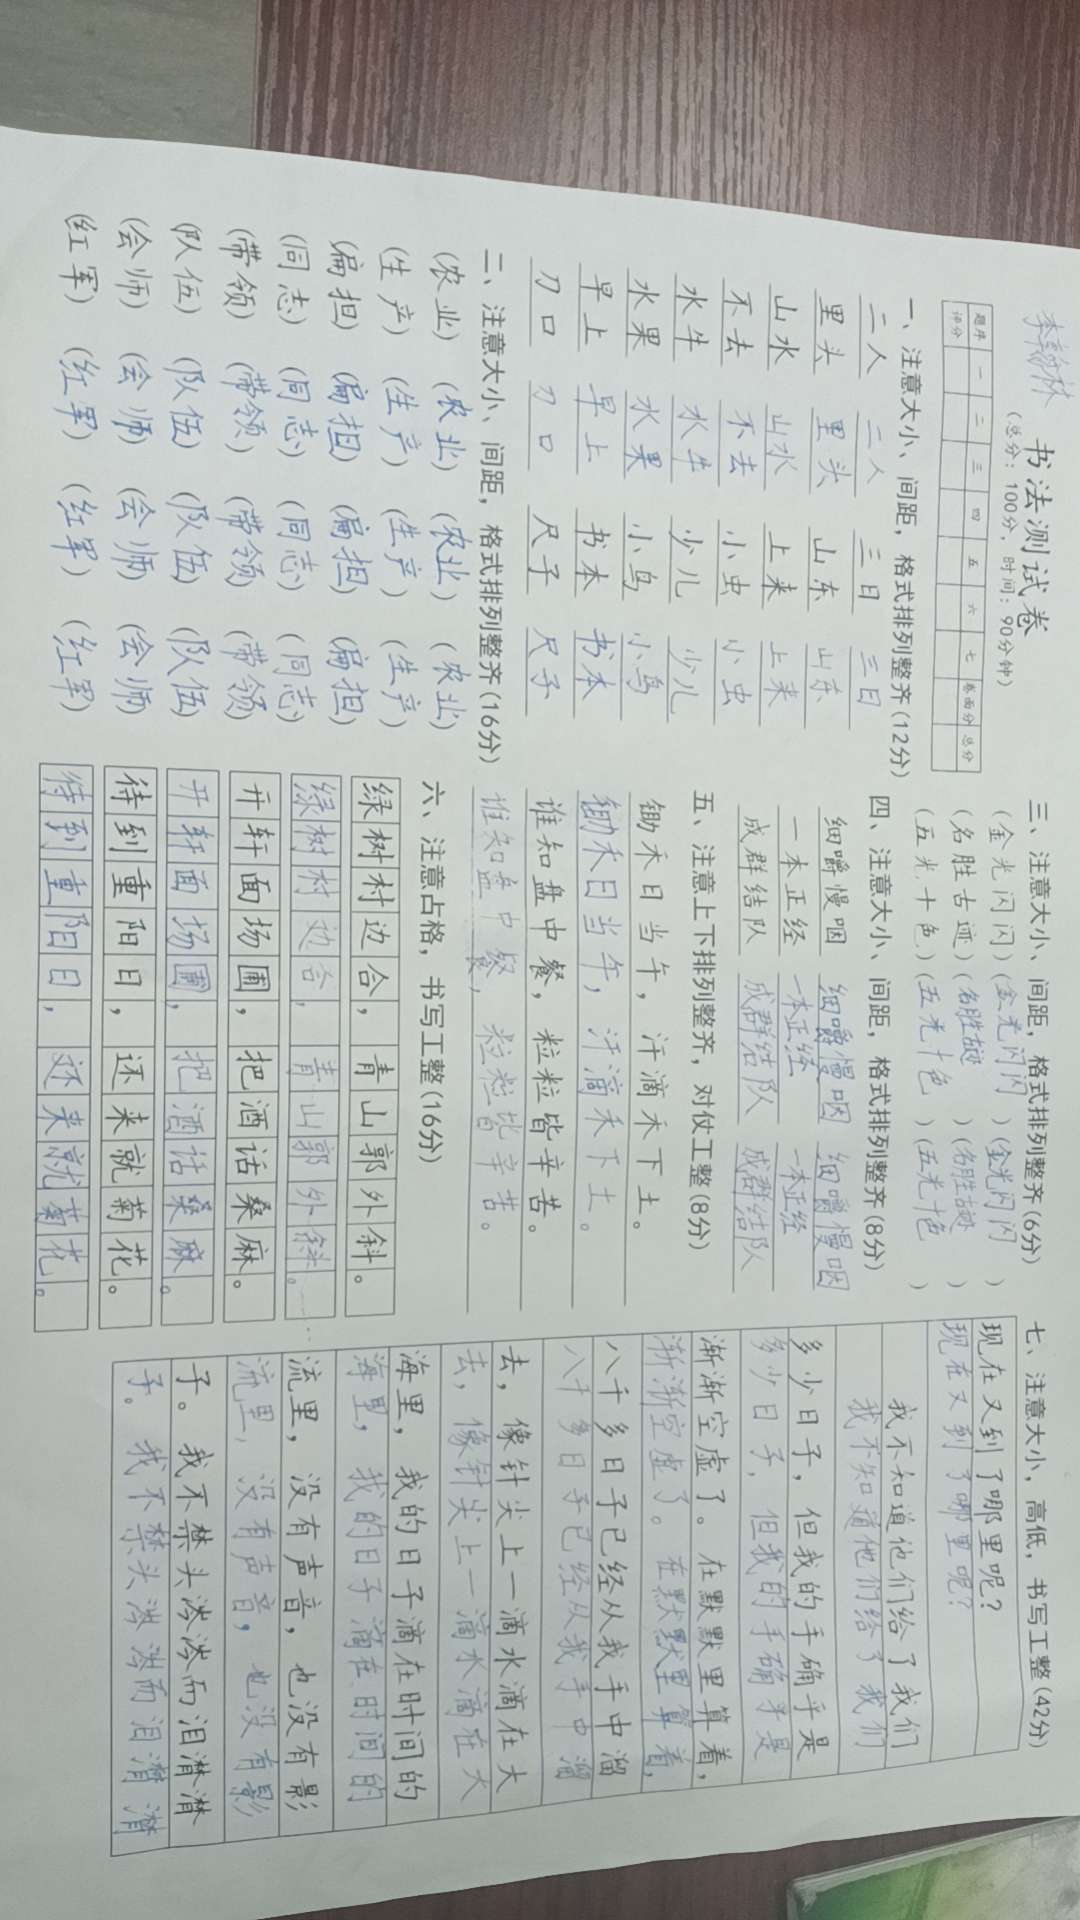 李翰林
书法测试卷
(总分：100分，时间：90分钟)
题序 一 二 三 四 五 六 七 卷面分 总分
评分
一、注意大小、间距，格式排列整齐(12分)
二人 二人 三日 三日
里头 里头 山东 山东
山水 山水 上来 上来
不去 不去 小虫 小虫
水牛 水牛 少儿 少儿
水果 水果 小鸟 小鸟
早上 早上 书本 书本
刀口 刀口 尺子 尺子
二、注意大小、间距，格式排列整齐(16分)
(农业) (农业) (农业) (农业)
(生产) (生产) (生产) (生产)
(扁担) (扁担) (扁担) (扁担)
(同志) (同志) (同志) (同志)
(带领) (带领) (带领) (带领)
(队伍) (队伍) (队伍) (队伍)
(会师) (会师) (会师) (会师)
(红军) (红军) (红军) (红军)
三、注意大小、间距，格式排列整齐(6分)
(金光闪闪) (金光闪闪) (金光闪闪)
(名胜古迹) (名胜古迹) (名胜古迹)
(五光十色) (五光十色) (五光十色)
四、注意大小、间距，格式排列整齐(8分)
细嚼慢咽 细嚼慢咽 细嚼慢咽
一本正经 一本正经 一本正经
成群结队 成群结队 成群结队
五、注意上下排列整齐，对仗工整(8分)
锄禾日当午，汗滴禾下土。
锄禾日当午，汗滴禾下土。
谁知盘中餐，粒粒皆辛苦。
谁知盘中餐，粒粒皆辛苦。
六、注意占格，书写工整(16分)
绿树村边合，青山郭外斜。
绿树村边合，青山郭外斜。
开轩面场圃，把酒话桑麻。
开轩面场圃，把酒话桑麻。
待到重阳日，还来就菊花。
待到重阳日，还来就菊花。
七、注意大小，高低，书写工整(42分)
现在又到了哪里呢？
现在又到了哪里呢？
我不知道他们给了我们
我不知道他们给了我们
多少日子，但我的手确乎是
多少日子，但我的手确乎是
渐渐空虚了。在默默里算着，
渐渐空虚了。在默默里算着，
八千多日子已经从我手中溜
八千多日子已经从我手中溜
去，像针尖上一滴水滴在大
去，像针尖上一滴水滴在大
海里，我的日子滴在时间的
海里，我的日子滴在时间的
流里，没有声音，也没有影
流里，没有声音，也没有影
子。我不禁头涔涔而泪潸潸
子。我不禁头涔涔而泪潸潸